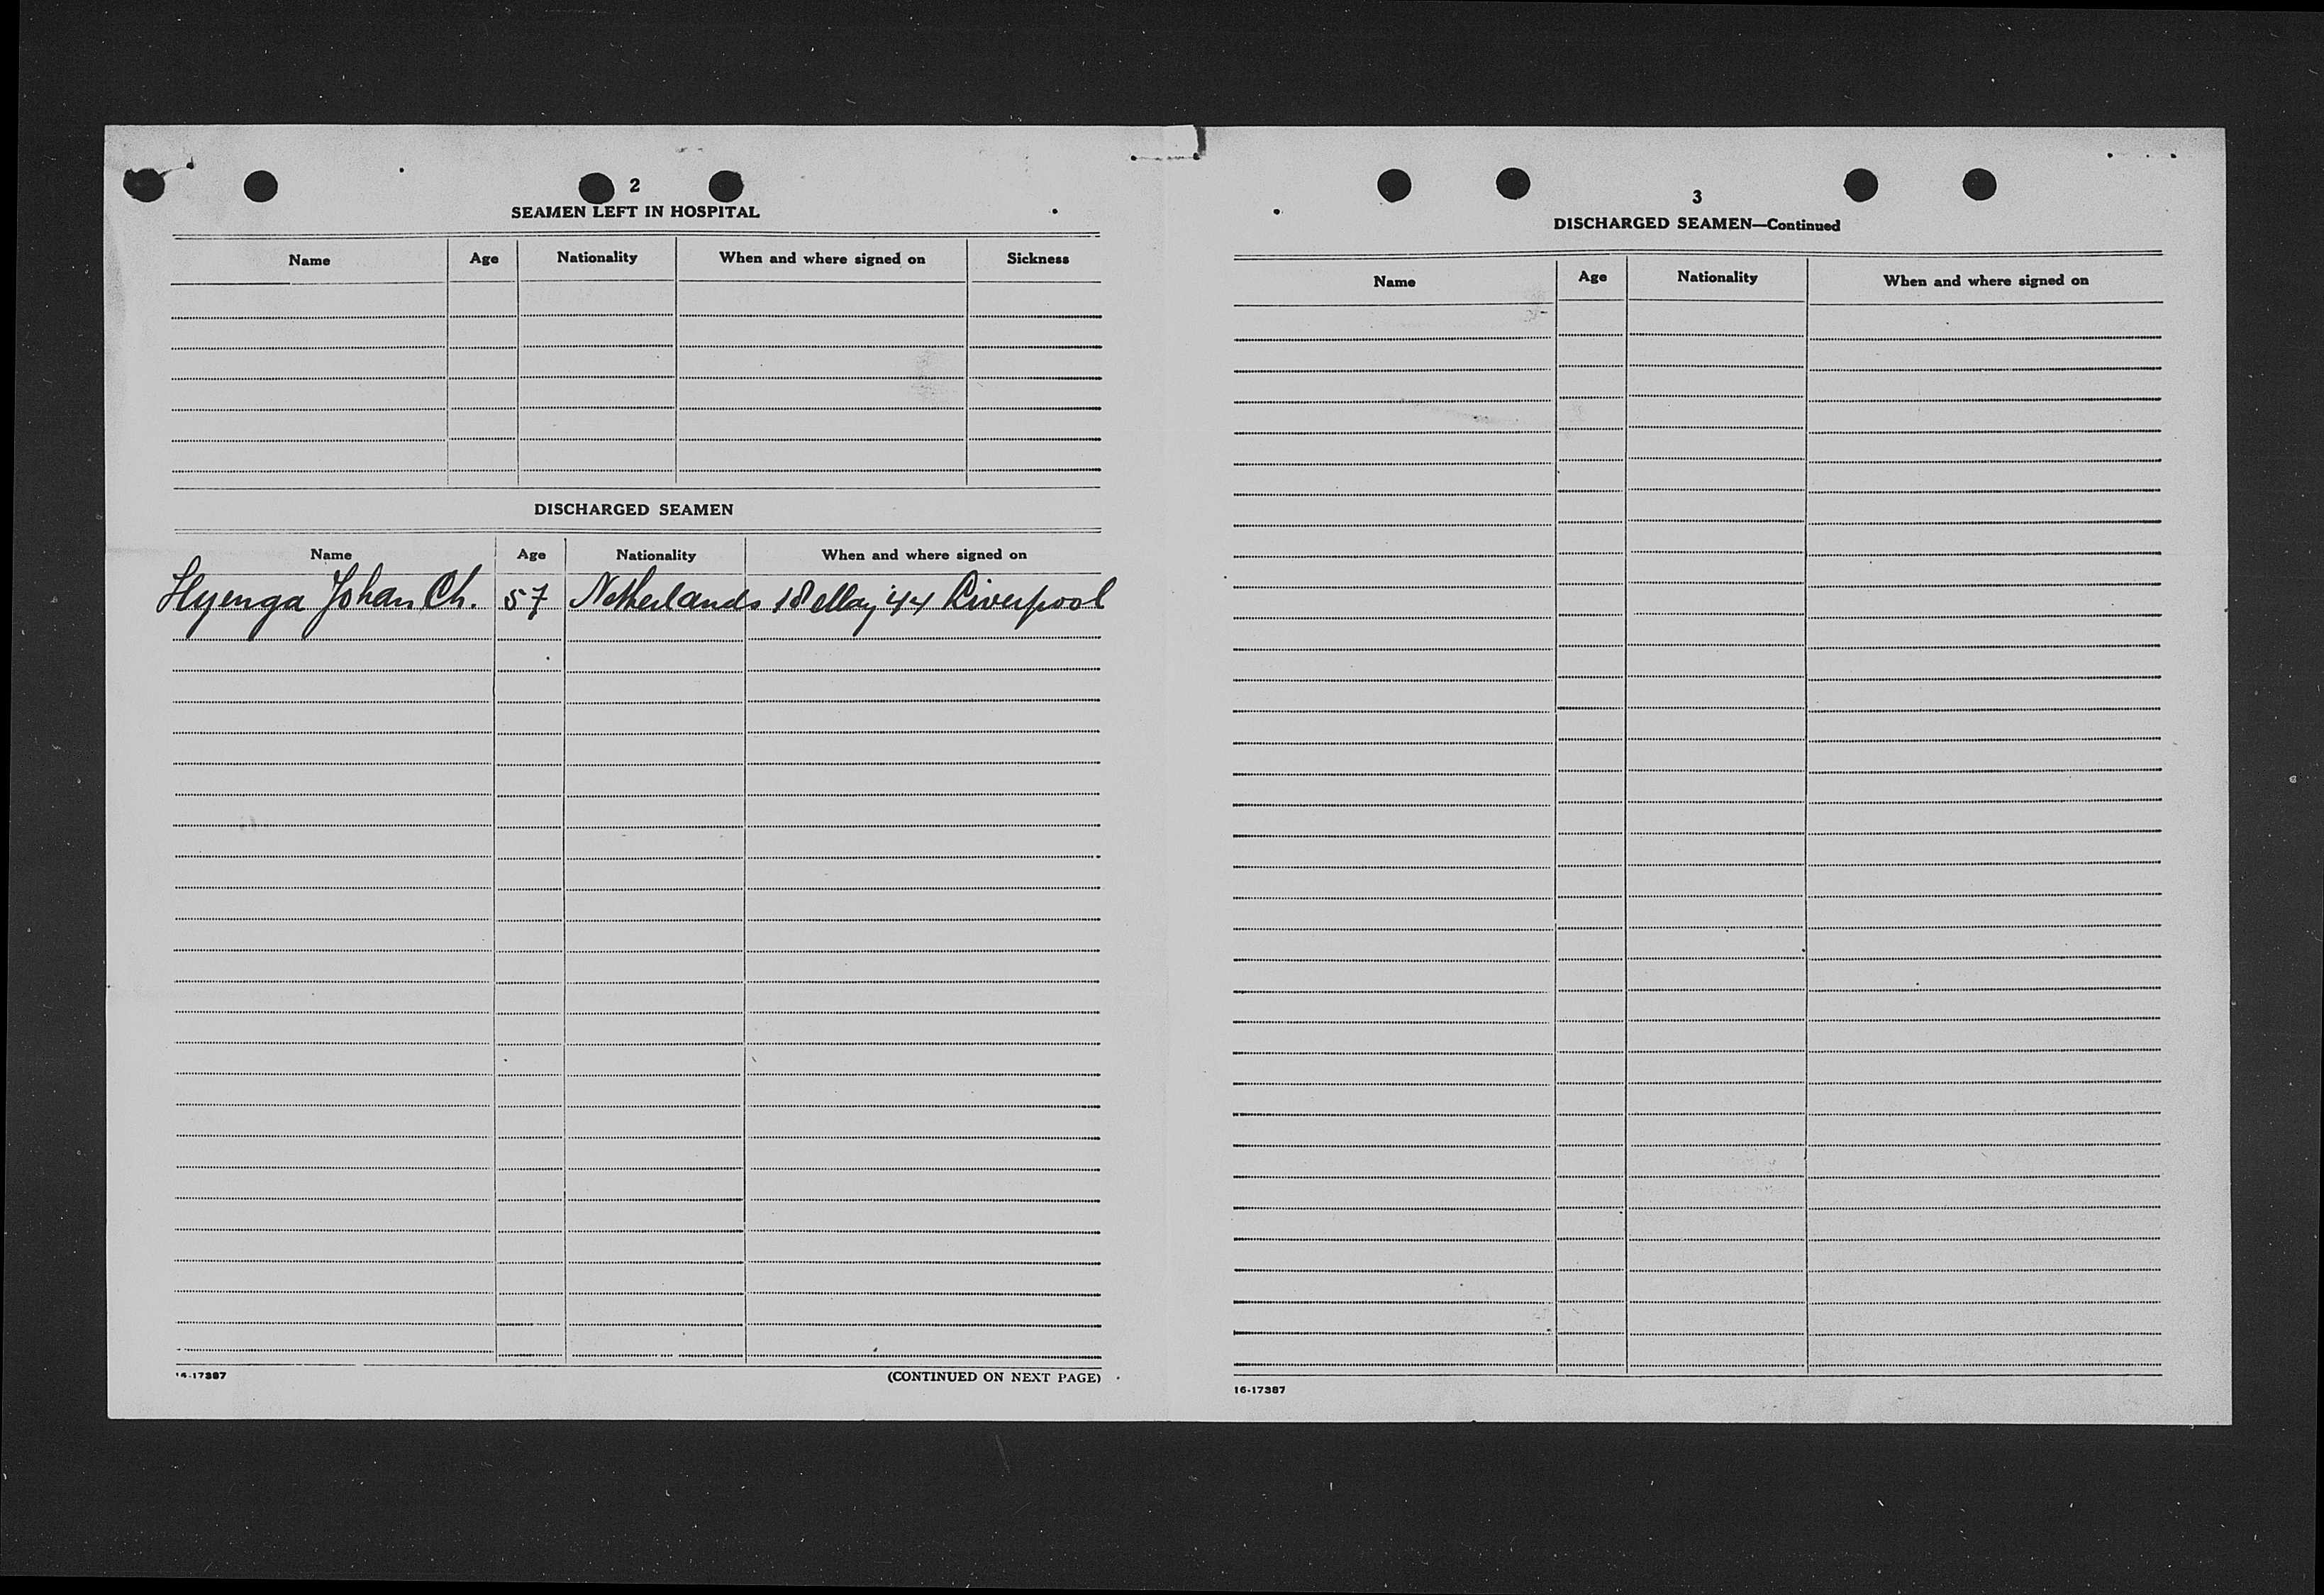 2
SEAMEN LEFT IN HOSPITAL
Name Age Nationality When and where signed on Sickness
DISCHARGED SEAMEN
Name Age Nationality When and where signed on
Hyenga Johan Ch. 57 Netherlands 18 May '44 Liverpool
16-17387
(CONTINUED ON NEXT PAGE)
3
DISCHARGED SEAMEN—Continued
Name Age Nationality When and where signed on
16-17387